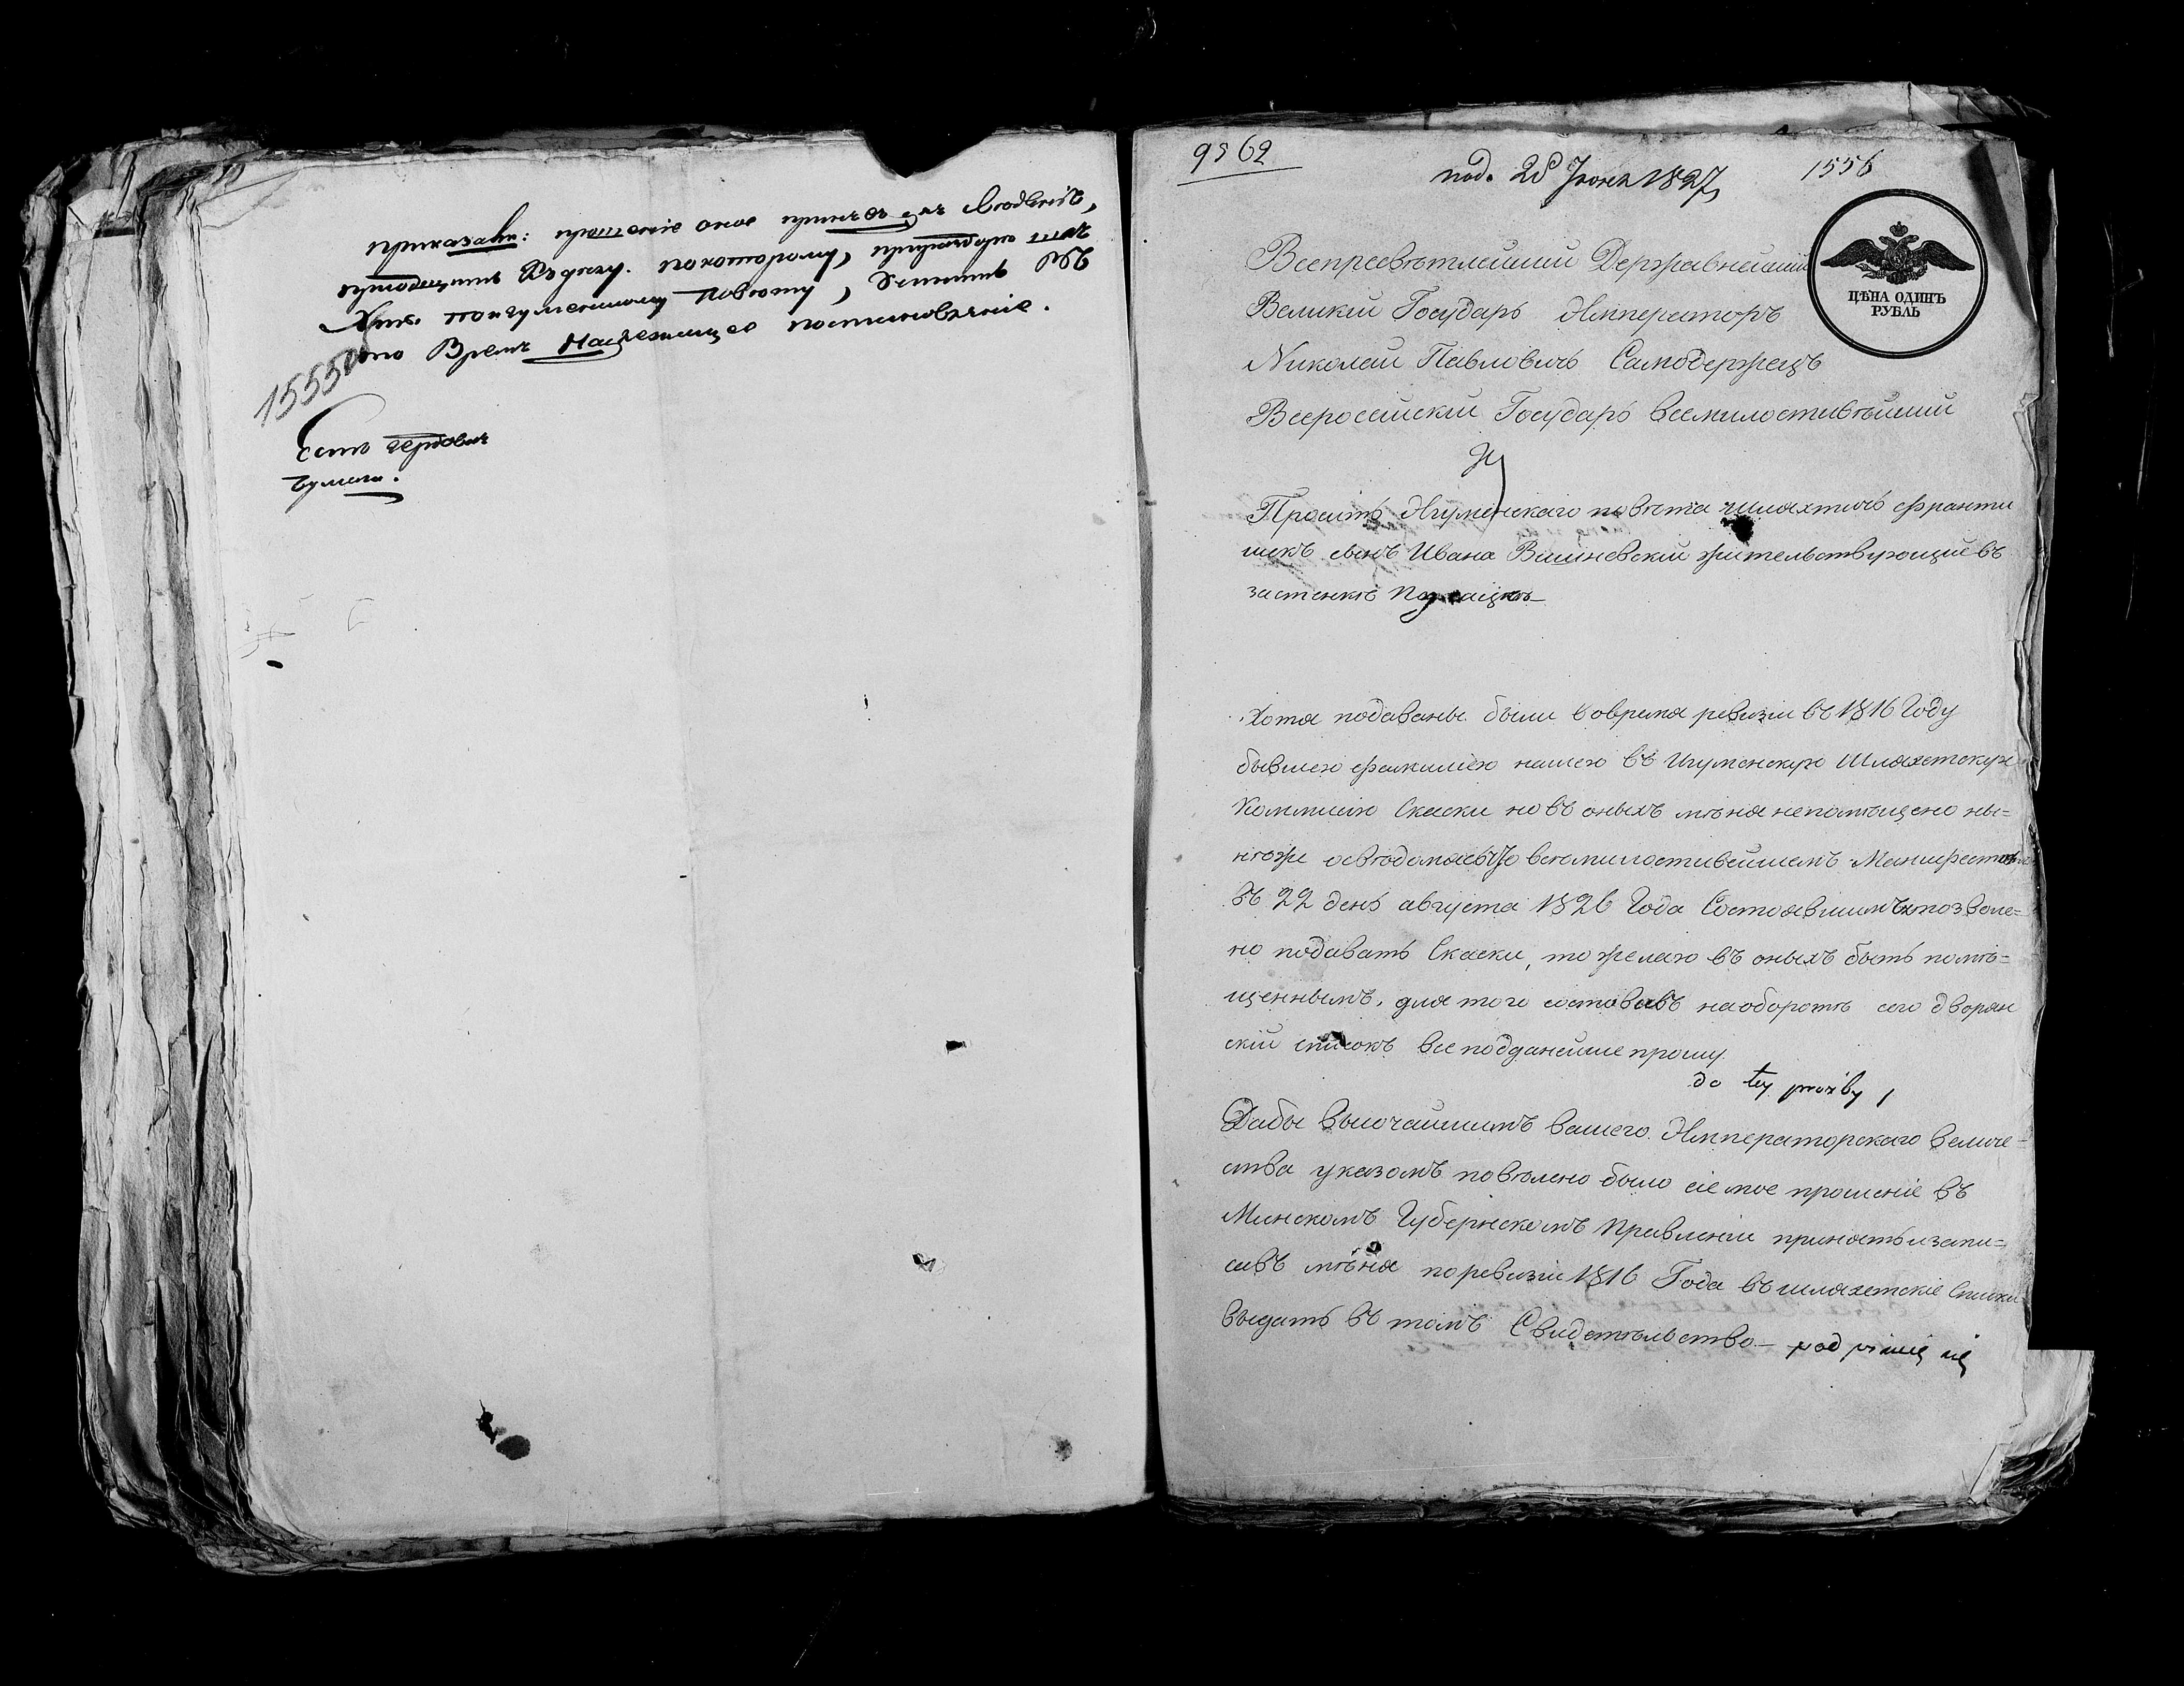 Приказали: прошеніе оное
Время Надлежащее постановленіе.
1555
Есть гербовая
бумага.
9562
под. 28 Июня 1827
1556
ЦѢНА ОДИНЪ
РУБЛЬ
Всепресвѣтлейший Державнейший
Великий Государь Император
Николай Павловичь Самодержецъ
Всероссийский Государь Всемилостивѣйший
Просить Игуменскаго повѣта шляхтичь Франти
шекъ сынъ Ивана Вишневский жительствующий въ
застенкѣ
Хотя подаваны были вовремя ревизіи въ 1816 Году
бывшею фамиліею нашею въ Игуменскую Шляхетскую
Коммисію Скаски но въ оныхъ мѣня непомѣщено ны=
нѣже всемилостивейшемъ Манифестомъ
въ 22 день августа 1826 Года Состоявшимъ позволе=
но подавать Скаски, то желаю въ оныхъ быть помѣ=
щеннымъ, для того составъ наоборотѣ сего дворян
скій списокъ всеподданейше прошу
do tey prozby
Дабы Высочайшимъ вашего Императорскаго величе=
ства указомъ повѣлено было сіе мое прошеніе въ
Минскомъ Губернскомъ Правленіи принять изапи=
савъ мѣня поревизіи 1816 Года въ шляхетскіе Списки
выдать въ томъ Свидетельство — pod